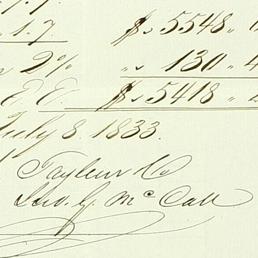 1.7. $ 5548 "
2% " 130 " 4
E. E. $ 5418 "
July 8. 1833.
Tayleur Co
Geo. G. McCall